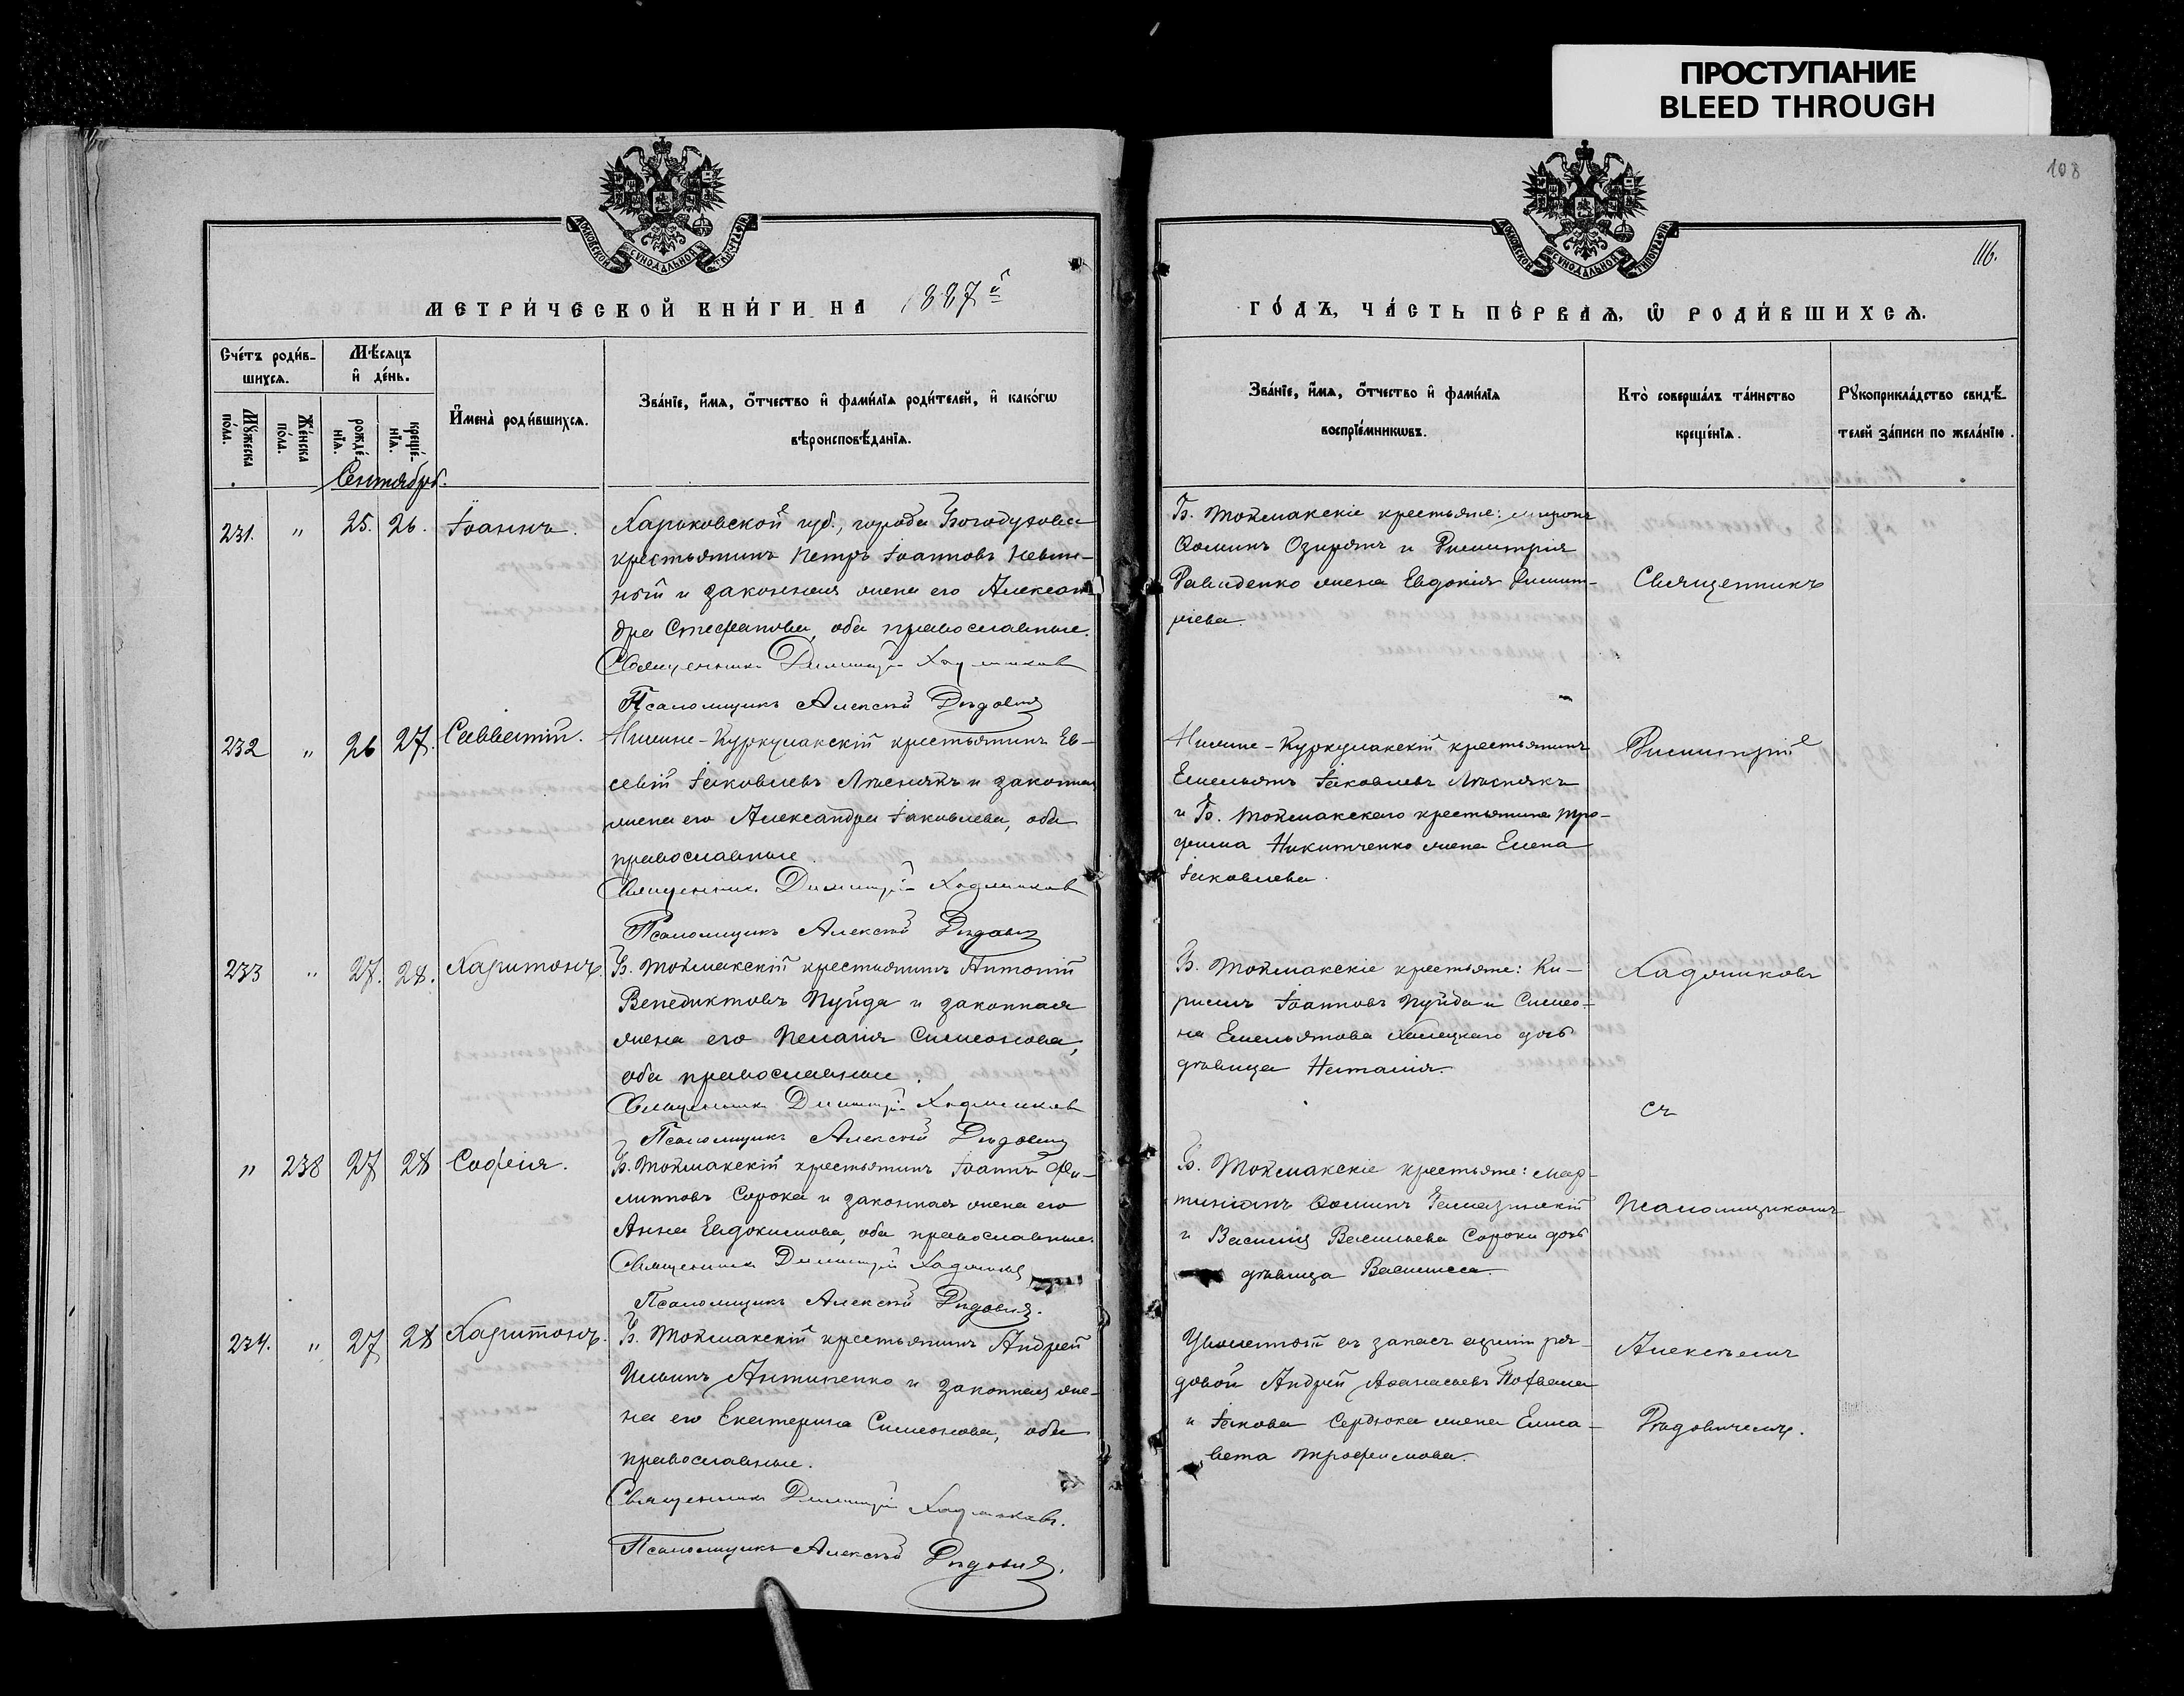 ПРОСТУПАНИЕ
BLEED THROUGH
108
116.
МОСКОВСКОЙ СУНОДАЛЬНОЙ ТИПОГРАФІИ
МОСКОВСКОЙ СУНОДАЛЬНОЙ ТИПОГРАФІИ
МЕТРИ́ЧЕСКОЙ КНИ́ГИ НА 1887й
ГО́ДЪ, ЧА́СТЬ ПЕ́РВАѦ, Ѡ҆ РОДИ́ВШИХСѦ.
Сче́тъ роди́в-
шихсѧ.
Мѣ́сѧцъ
и҆ де́нь.
Му́жеска по́ла.
Же́нска по́ла.
рожде́-
нїѧ.
креще́-
нїѧ.
И҆мена̀ роди́вшихсѧ.
Зва́нїе, и҆́мѧ, ѻ҆́тчество и҆ фами́лїѧ роди́телей, и҆ како́гѡ
вѣроисповѣ́данїѧ.
Зва́нїе, и҆́мѧ, ѻ҆́тчество и҆ фами́лїѧ
воспрїе́мникѡвъ.
Кто̀ соверша́лъ та́инство
креще́нїѧ.
Рꙋкоприкла́дство свидѣ́-
телей за́писи по жела́нїю.
Сентябрь.
231. " 25. 26. Іоаннъ.
Харьковской губ., города Богодухова
крестьянинъ Петръ Іоанновъ Невин-
ный и законная жена его Алексан
дра Стефанова, оба православные.
Священникъ Димитрій Ходжиковъ
Псаломщикъ Алексѣй Дѣдовичъ
Б. Токмакскіе крестьяне: Миронъ
Ѳоминъ и Димитрія
Давиденко жена Евдокія Димит-
ріева.
Священникъ
232 " 26 27. Савватій.
Нижне-Куркулакскій крестьянинъ Ев-
севій Іаковлевъ Лѣснякъ и законная
жена его Александра Іаковлева, оба
православные.
Священникъ Димитрій Ходжиковъ
Псаломщикъ Алексѣй Дѣдовичъ
Нижне-Куркулакскій крестьянинъ
Емельянъ Іаковлевъ Лѣснякъ
и Б. Токмакскаго крестьянина Тро-
фима Никитченко жена Елена
Іаковлева.
Димитрій
233 " 27. 28. Харитонъ.
Б. Токмакскій крестьянинъ Антоній
Венедиктовъ Пуйда и законная
жена его Пелагія Симеонова,
оба православные.
Священникъ Димитрій Ходжиковъ
Псаломщикъ Алексѣй Дѣдовичъ
Б. Токмакскіе крестьяне: Ки-
риллъ Іоанновъ Пуйда и Симео-
на Емельянова дочь
дѣвица Наталія.
Ходжиковъ
съ
" 238 27 28 Софія.
Б. Токмакскій крестьянинъ Іоаннъ Фи-
липповъ Сорока и законная жена его
Анна Евдокимова, оба православные.
Священникъ Димитрій Ходжиковъ
Псаломщикъ Алексѣй Дѣдовичъ.
Б. Токмакскіе крестьяне: Мар-
тиніанъ Ѳоминъ
и Василія Васильева Сороки дочь
дѣвица Василисса.
Псаломщикомъ
234. " 27 28 Харитонъ.
Б. Токмакскій крестьянинъ Андрей
Ильинъ Антипенко и законная же-
на его Екатерина Симеонова, оба
православные.
Священникъ Димитрій Ходжиковъ.
Псаломщикъ Алексѣй Дѣдовичъ.
Уволенный въ запасъ арміи ря-
довой Андрей Аѳанасьевъ
и Іакова Сердюка жена Елиса-
вета Трофимова.
Алексѣемъ
Дѣдовичемъ.